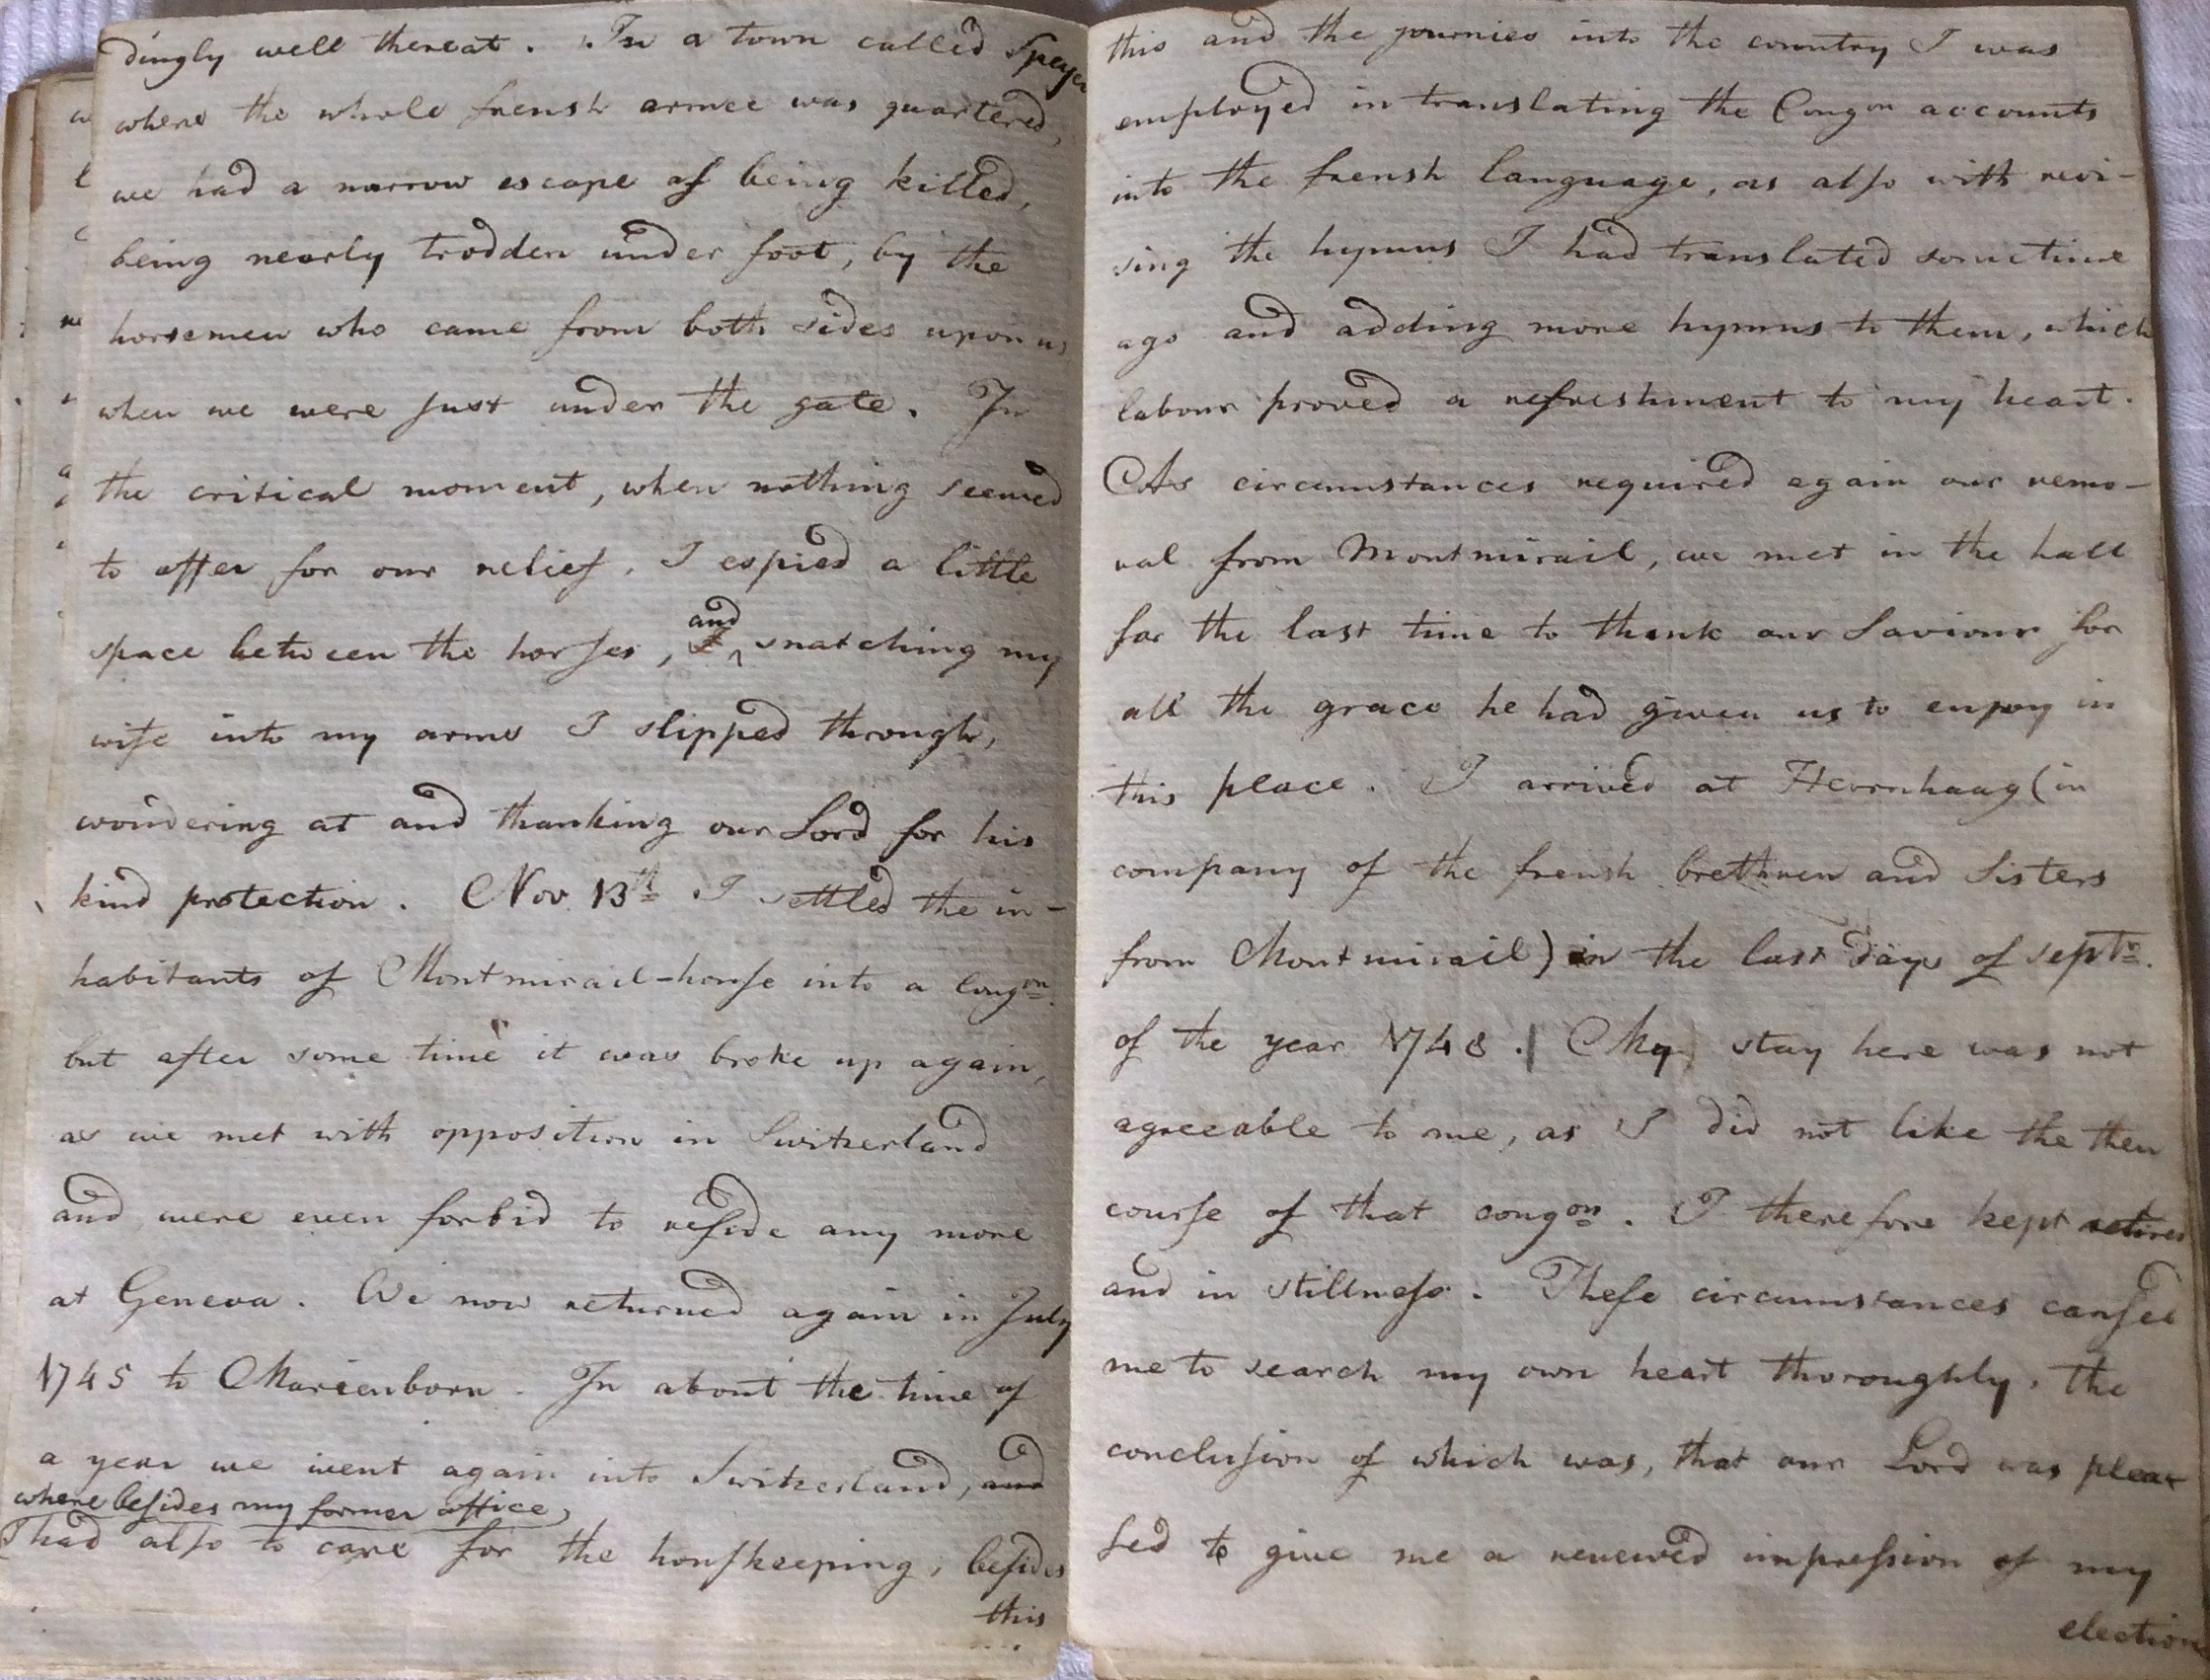 dingly well thereat. In a town called Speyer
where the whole frensh armee was quartered,
we had a narrow escape of being killed,
being nearly trodden under foot, by the
horsemen who came from both sides upon us
when we were just under the gate. In
the critical moment, when nothing seemed
to offer for our relief, I espied a little
and
space between the horses, snatching my
wife into my arms I slipped through,
wondering at and thanking our Lord for his
kind protection. Nov. 13th I settled the in-
habitants of Montmirail-house into a congon.
but after some time it was broke up again,
as we met with opposition in Switzerland
and were even forbid to reside any more
at Geneva. We now returned again in July
1745 to Marienborn. In about the time of
a year we went again into Switzerland, and
where besides my former office,
I had also to care for the houskeeping, besides
this
this and the journies into the country I was
employed in translating the Congon accounts
into the frensh language, as also with revi-
sing the hymns I had translated sometime
ago and adding more hymns to them, which
labour proved a refreshment to my heart.
As circumstances required again our remo-
val from Montmirail, we met in the hall
for the last time to thank our Saviour for
all the grace he had given us to enjoy in
this place. I arrived at Herrnhaag (in
company of the frensh brethren and Sisters
from Montmirail) in the last days of septr.
of the year 1748. My stay here was not
agreeable to me, as I did not like the then
course of that congon. I therefore kept retired
and in stillness. These circumstances caused
me to search my own heart thoroughly, the
conclusion of which was, that our Lord was plea-
sed to give me a renewed impression of my
election